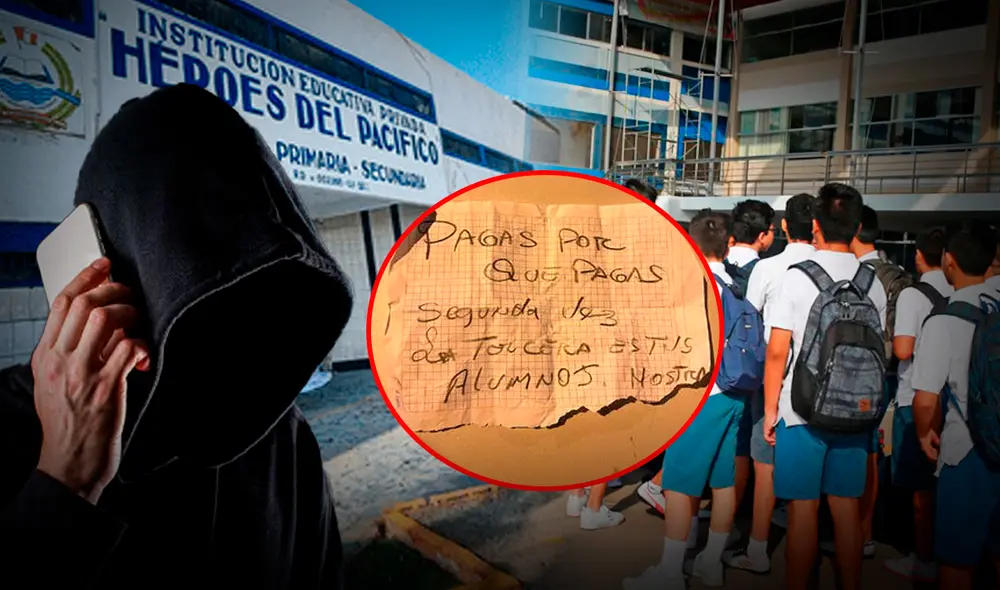 INSTITUCION EDUCATIVA PRIVADA
HÉROES DEL PACÍFICO
PRIMARIA - SECUNDARIA
PAGAS POR
QUE PAGAS
SEGUNDA VEZ
LA TERCERA ESTUS
ALUMNOS. MOSTRA